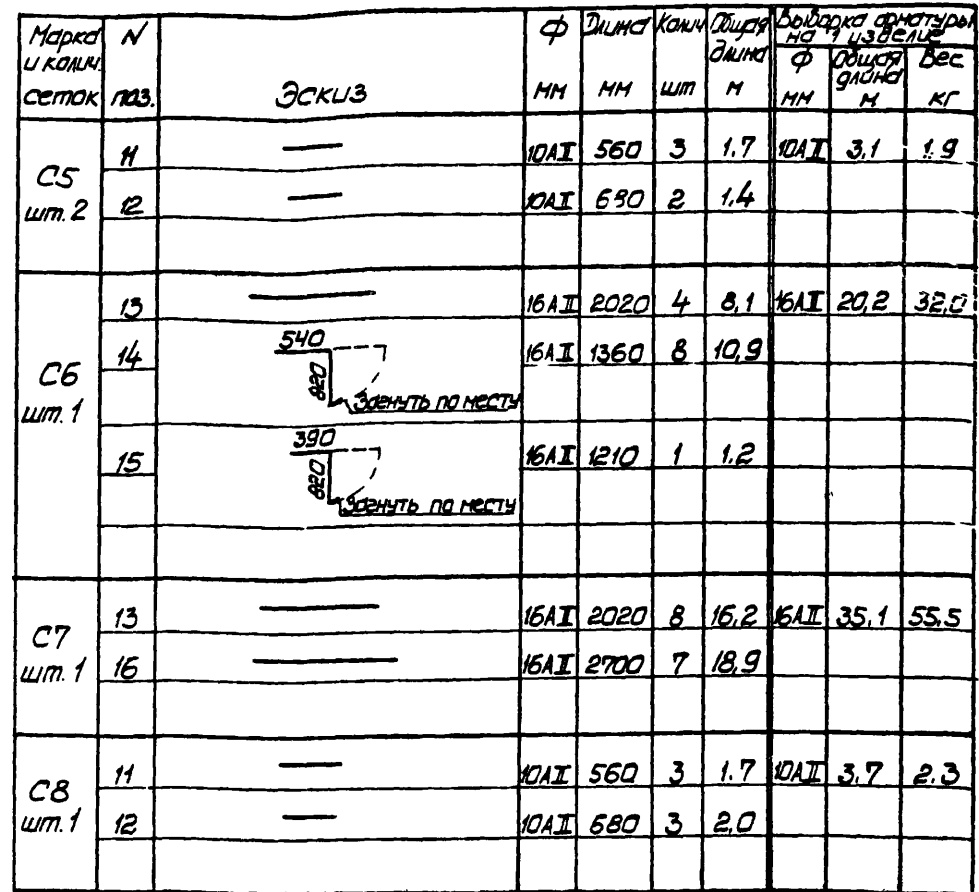 Марка и колич. сеток N поз. Эскиз Ф мм Длина мм Колич шт Общая длина м Выборка арматуры на 1 изделие Ф мм Общая длина м Вес кг
С5 шт. 2
11 10АII 560 3 1.7 10АII 3,1 1.9
12 10АII 680 2 1,4
С6 шт. 1
13 16АII 2020 4 8,1 16АII 20,2 32,0
14 540 820 Загнуть по месту 16АII 1360 8 10,9
15 390 820 Загнуть по месту 16АII 1210 1 1.2
С7 шт. 1
13 16АII 2020 8 16,2 16АII 35,1 55,5
16 16АII 2700 7 18,9
С8 шт. 1
11 10АII 560 3 1.7 10АII 3,7 2.3
12 10АII 680 3 2,0